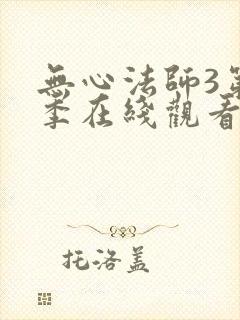 無心法師3第
季在綫觀看
托洛蓋